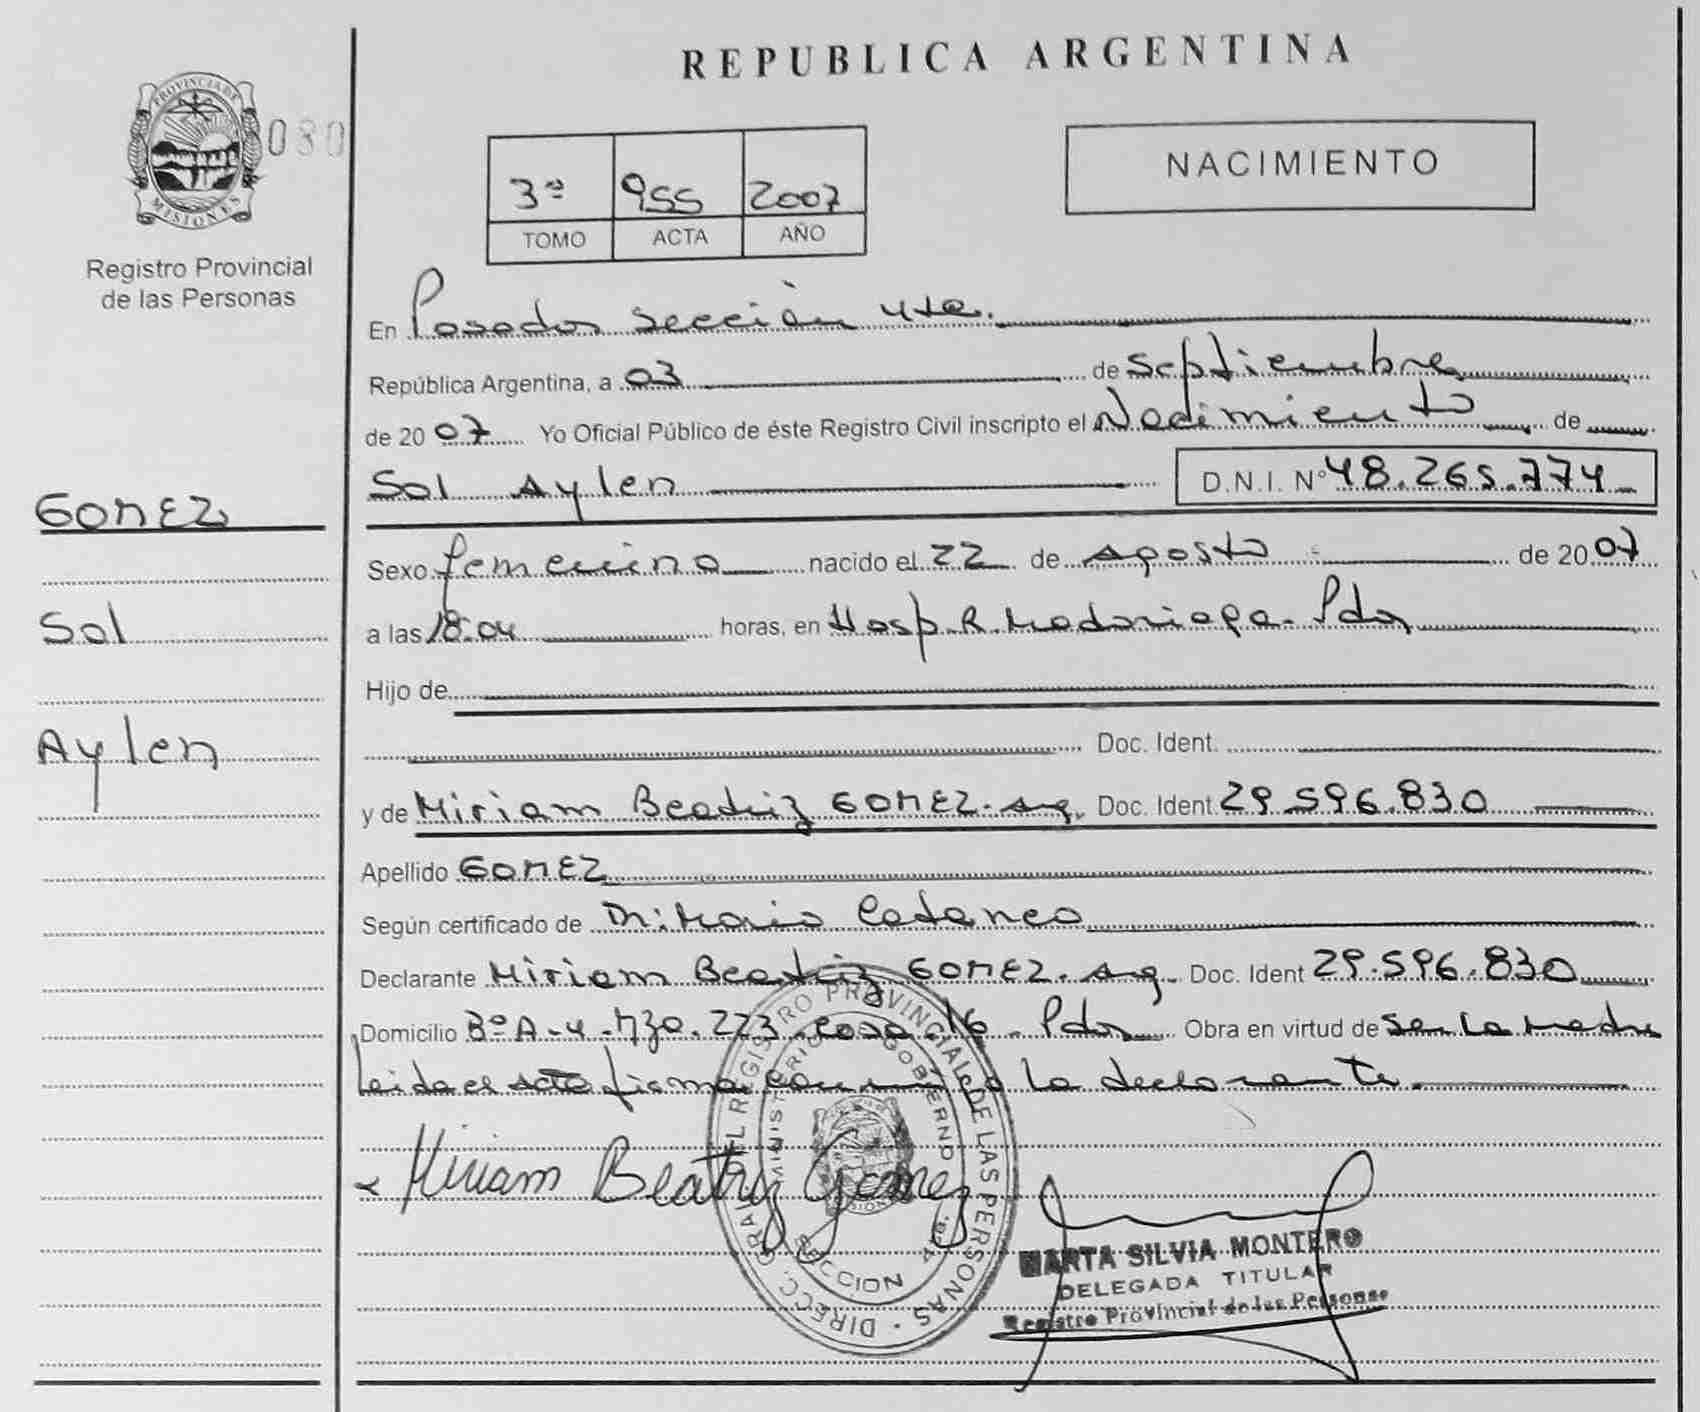 REPUBLICA ARGENTINA
PROVINCIA DE
MISIONES
080
Registro Provincial
de las Personas
3º 955 2007
TOMO ACTA AÑO
NACIMIENTO
En Posadas sección 4ta.
República Argentina, a 03 de Septiembre
de 2007 Yo Oficial Público de éste Registro Civil inscripto el Nacimiento de
Sol Aylen D.N.I. Nº 48.265.774
GOMEZ
Sexo femenino nacido el 22 de Agosto de 2007
Sol
a las 18:04 horas, en Hosp. R. Madariaga - Pdas
Hijo de
Aylen
Doc. Ident.
y de Miriam Beatriz GOMEZ. Arg. Doc. Ident. 29.596.830
Apellido GOMEZ
Según certificado de Dr: Mario Cataneo
Declarante Miriam Beatriz GOMEZ. Arg. Doc. Ident 29.596.830
Domicilio casa 16 - Pdas Obra en virtud de Ser La madre
Leida el acta firma conmigo la declarante
Miriam Beatriz Gomez
DIRECC. GRAL. DEL REGISTRO PROVINCIAL DE LAS PERSONAS
MINISTERIO GOBIERNO
SECCION 4ta.
MARTA SILVIA MONTERO
DELEGADA TITULAR
Registro Provincial de las Personas